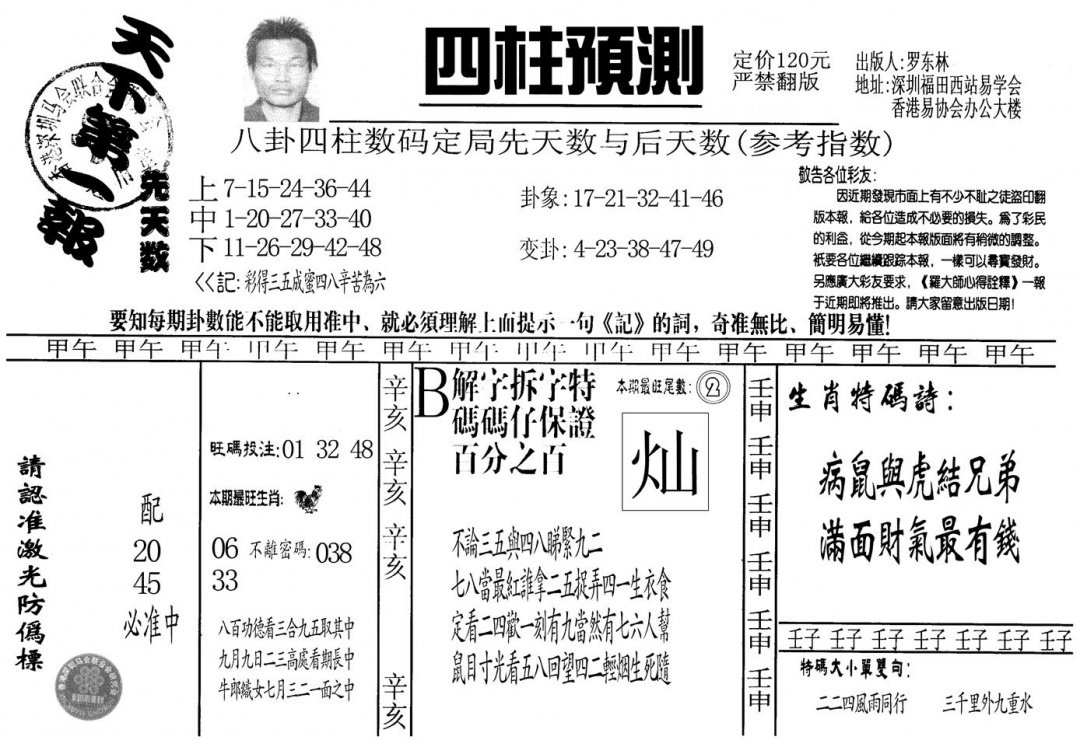 天下第一報
四柱預測
定价120元
严禁翻版
出版人:罗东林
地址:深圳福田西站易学会
香港易协会办公大楼
八卦四柱数码定局先天数与后天数(参考指数)
先天数
上 7-15-24-36-44
中 1-20-27-33-40
下 11-26-29-42-48
<<記:彩得三五成蜜四八辛苦為六
卦象:17-21-32-41-46
变卦:4-23-38-47-49
敬告各位彩友:
因近期發現市面上有不少不耻之徒盜印翻
版本報,給各位造成不必要的損失。爲了彩民
的利益,從今期起本報版面將有稍微的調整。
衹要各位繼續跟踪本報,一樣可以尋寶發財。
另應廣大彩友要求,《羅大師心得詮釋》一報
于近期即將推出。請大家留意出版日期!
要知每期卦數能不能取用准中、就必須理解上面提示一句《記》的詞,奇准無比、簡明易懂!
甲午 甲午 甲午 甲午 甲午 甲午 甲午 甲午 甲午 甲午 甲午 甲午 甲午 甲午 甲午
請認准激光防僞標
配
20
45
必准中
旺碼投注:01 32 48
本期最旺生肖:
06 不離密碼:038
33
八百功德看三合九五取其中
九月九日二三高處看期長中
牛郎織女七月三二一面之中
辛亥
辛亥
辛亥
辛亥
B解字拆字特
碼碼仔保證
百分之百
本期最旺尾數:2
灿
不論三五與四八睇緊九二
七八當最紅誰拿二五捉弄四一生衣食
定看二四歡一刻有九當然有七六人幫
鼠目寸光看五八回望四二輕烟生死隨
壬申
壬申
壬申
壬申
壬申
壬申
生肖特碼詩:
病鼠與虎結兄弟
滿面財氣最有錢
壬子 壬子 壬子 壬子 壬子 壬子 壬子
特碼大小單雙句:
二二四風雨同行 三千里外九重水